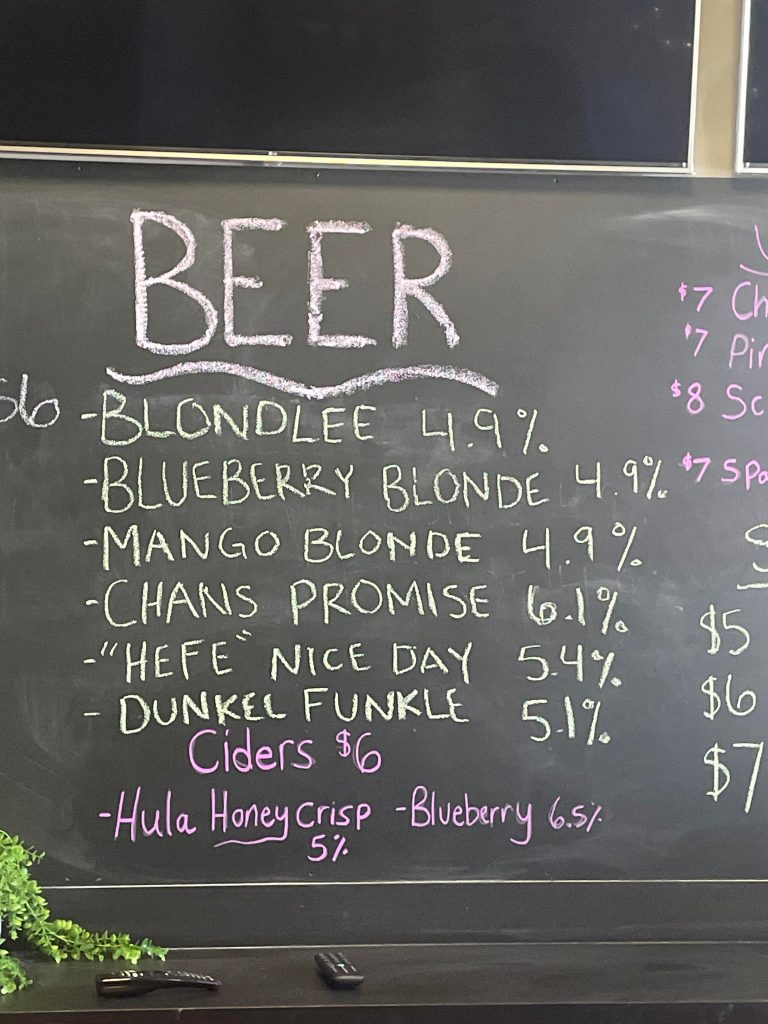 BEER
$6 -BLONDLEE 4.9%
-BLUEBERRY BLONDE 4.9%
-MANGO BLONDE 4.9%
-CHANS PROMISE 6.1%
-"HEFE" NICE DAY 5.4%
- DUNKEL FUNKLE 5.1%
Ciders $6
-Hula Honeycrisp -Blueberry 6.5%
5%
$7 Ch
$7 Pin
$8 Sc
$7 Spa
$5
$6
$7